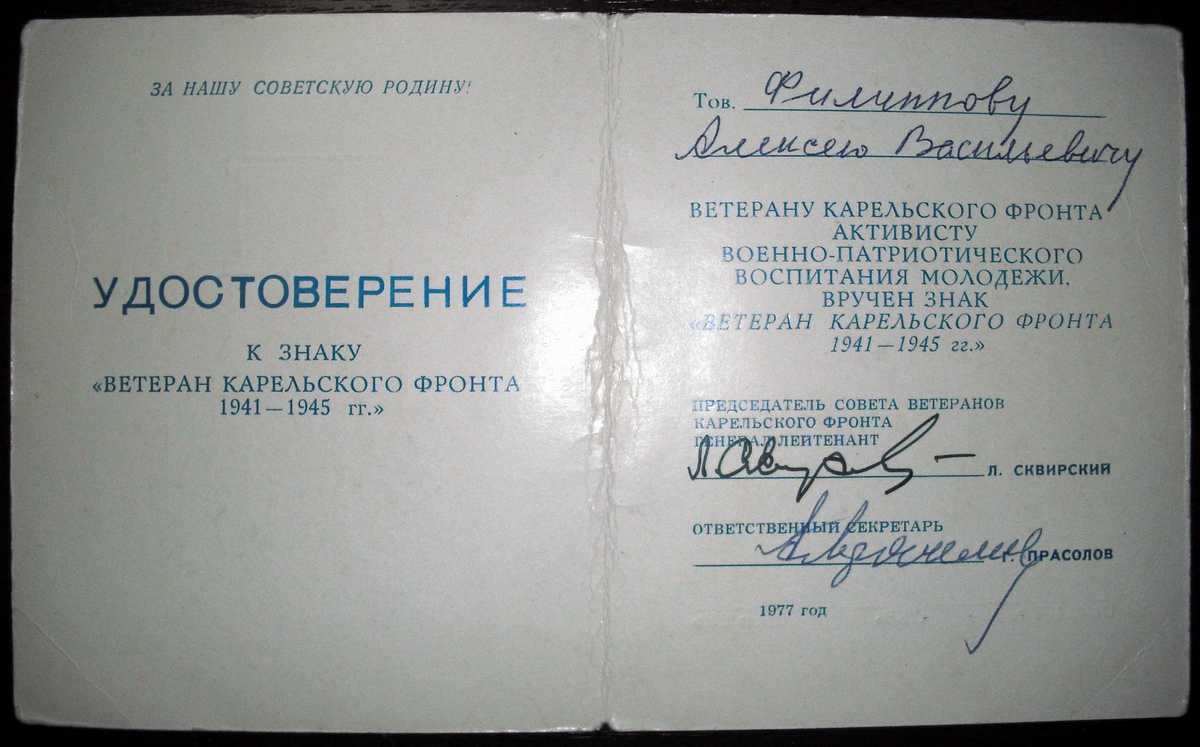 ЗА НАШУ СОВЕТСКУЮ РОДИНУ!
УДОСТОВЕРЕНИЕ
К ЗНАКУ
«ВЕТЕРАН КАРЕЛЬСКОГО ФРОНТА
1941—1945 гг.»
Тов. Филиппову
Алексею Васильевичу
ВЕТЕРАНУ КАРЕЛЬСКОГО ФРОНТА
АКТИВИСТУ
ВОЕННО-ПАТРИОТИЧЕСКОГО
ВОСПИТАНИЯ МОЛОДЕЖИ.
ВРУЧЕН ЗНАК
«ВЕТЕРАН КАРЕЛЬСКОГО ФРОНТА
1941—1945 гг.»
ПРЕДСЕДАТЕЛЬ СОВЕТА ВЕТЕРАНОВ
КАРЕЛЬСКОГО ФРОНТА
ГЕНЕРАЛ-ЛЕЙТЕНАНТ
Л. СКВИРСКИЙ
ОТВЕТСТВЕННЫЙ СЕКРЕТАРЬ
Г. ПРАСОЛОВ
1977 год